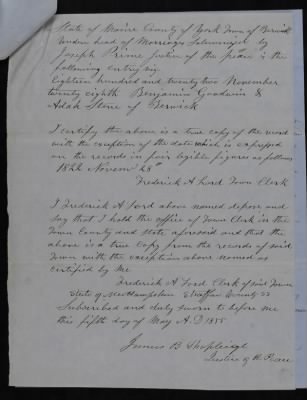 State of Maine County of York Town of Berwick
Under head of Marriages Solemnized by
Joseph Prime Justice of the peace is the
following entry viz
Eighteen hundred and twenty two November
twenty eighth Benjamin Goodwin &
Adah Stone of Berwick
I certify the above is a true copy of the record
with the exception of the date which is expressed
on the records in four legible figures as follows
1822 Novem 28
Frederick A Ford Town Clerk
I Frederick A Ford above named depose and
say that I hold the office of Town Clerk in the
Town County and State aforesaid and that the
above is a true Copy from the records of said
Town with the exception above named as
certified by Me
Frederick A Ford Clerk of said Town
State of New Hampshire Strafford County ss
Subscribed and duly sworn to before me
this fifth day of May A.D 1855
James B Shapleigh
Justice of the Peace